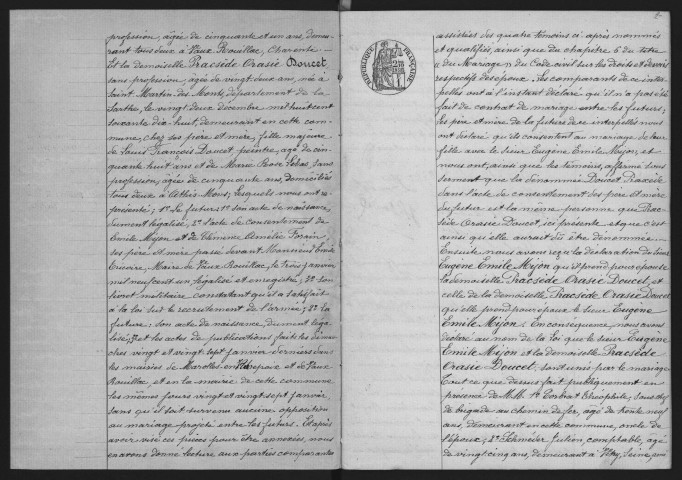 profession, âgée de cinquante et un ans, demeu-
rant tous deux à Vaux Rouillac, Charente -
Et la demoiselle Pracsède Orasie Doucet
sans profession, âgée de vingt deux ans, née à
Saint Martin des Monts, département de la
Sarthe, le vingt deux décembre mil huit cent
soixante dix huit, demeurant en cette com-
mune, chez ses père et mère, fille majeure
de Louis François Doucet, peintre, âgé de cin-
quante huit ans et de Marie Rose, sans
profession, âgée de cinquante ans, domiciliés
tous deux à Athis-Mons; lesquels nous ont re-
présenté; 1º Le futur: 1º son acte de naissance
dûment légalisé, 2º l'acte de consentement de
Emile Mijon et de Clémence Forain,
ses père et mère passé devant Monsieur Emile
Maire de Vaux Rouillac, le trois janvier
mil neuf cent un légalisé et enregistré; 3º son
livret militaire constatant qu'il a satisfait
à la loi sur le recrutement de l'armée; 2º La
future: son acte de naissance, dûment léga-
lisé; 3º et les actes de publications faits les diman-
ches vingt et vingt sept janvier derniers dans
les mairies de Marolles en Hurepoix et de Vaux
Rouillac, et en la mairie de cette commune
les mêmes jours vingt et vingt sept janvier,
sans qu'il soit survenu aucune opposition
au mariage projeté entre les futurs. Et après
avoir visé ces pièces pour être annexées, nous
en avons donné lecture aux parties comparantes
RÉPUBLIQUE FRANÇAISE
2
assistées des quatre témoins ci-après nommés
et qualifiés, ainsi que du chapitre 6 du titre
"du Mariage" du Code civil sur les droits et devoirs
respectifs des époux. Les comparants de ce inter-
pellés ont à l'instant déclaré qu'il n'a pas été
fait de contrat de mariage entre les futurs;
les père et mère de la future de ce interpellés nous
ont déclaré qu'ils consentent au mariage de leur
fille avec le sieur Eugène Emile Mijon, et
nous ont, ainsi que les témoins, affirmé sous
serment que la dénommée Doucet Pracsède
dans l'acte de consentement des père et mère
du futur est la même personne que Prac-
sède Orasie Doucet, ici présente et que c'est
ainsi qu'elle aurait dû être dénommée -
Ensuite nous avons reçu la déclaration du sieur
Eugène Emile Mijon qu'il prend pour épouse
la demoiselle Pracsède Orasie Doucet, et
celle de la demoiselle Pracsède Orasie Doucet
qu'elle prend pour époux le sieur Eugène
Emile Mijon: En conséquence, nous avons
déclaré au nom de la Loi que le sieur Eugène
Emile Mijon et la demoiselle Pracsède
Orasie Doucet, sont unis par le mariage
Tout ce que dessus fait publiquement en
présence de M.M. 1º Théophile, sous chef
de brigade au chemin de fer, âgé de trente neuf
ans, demeurant en cette commune, oncle de
l'époux; 2º Schneider Julien, comptable, âgé
de vingt cinq ans, demeurant à Vitry, Seine,